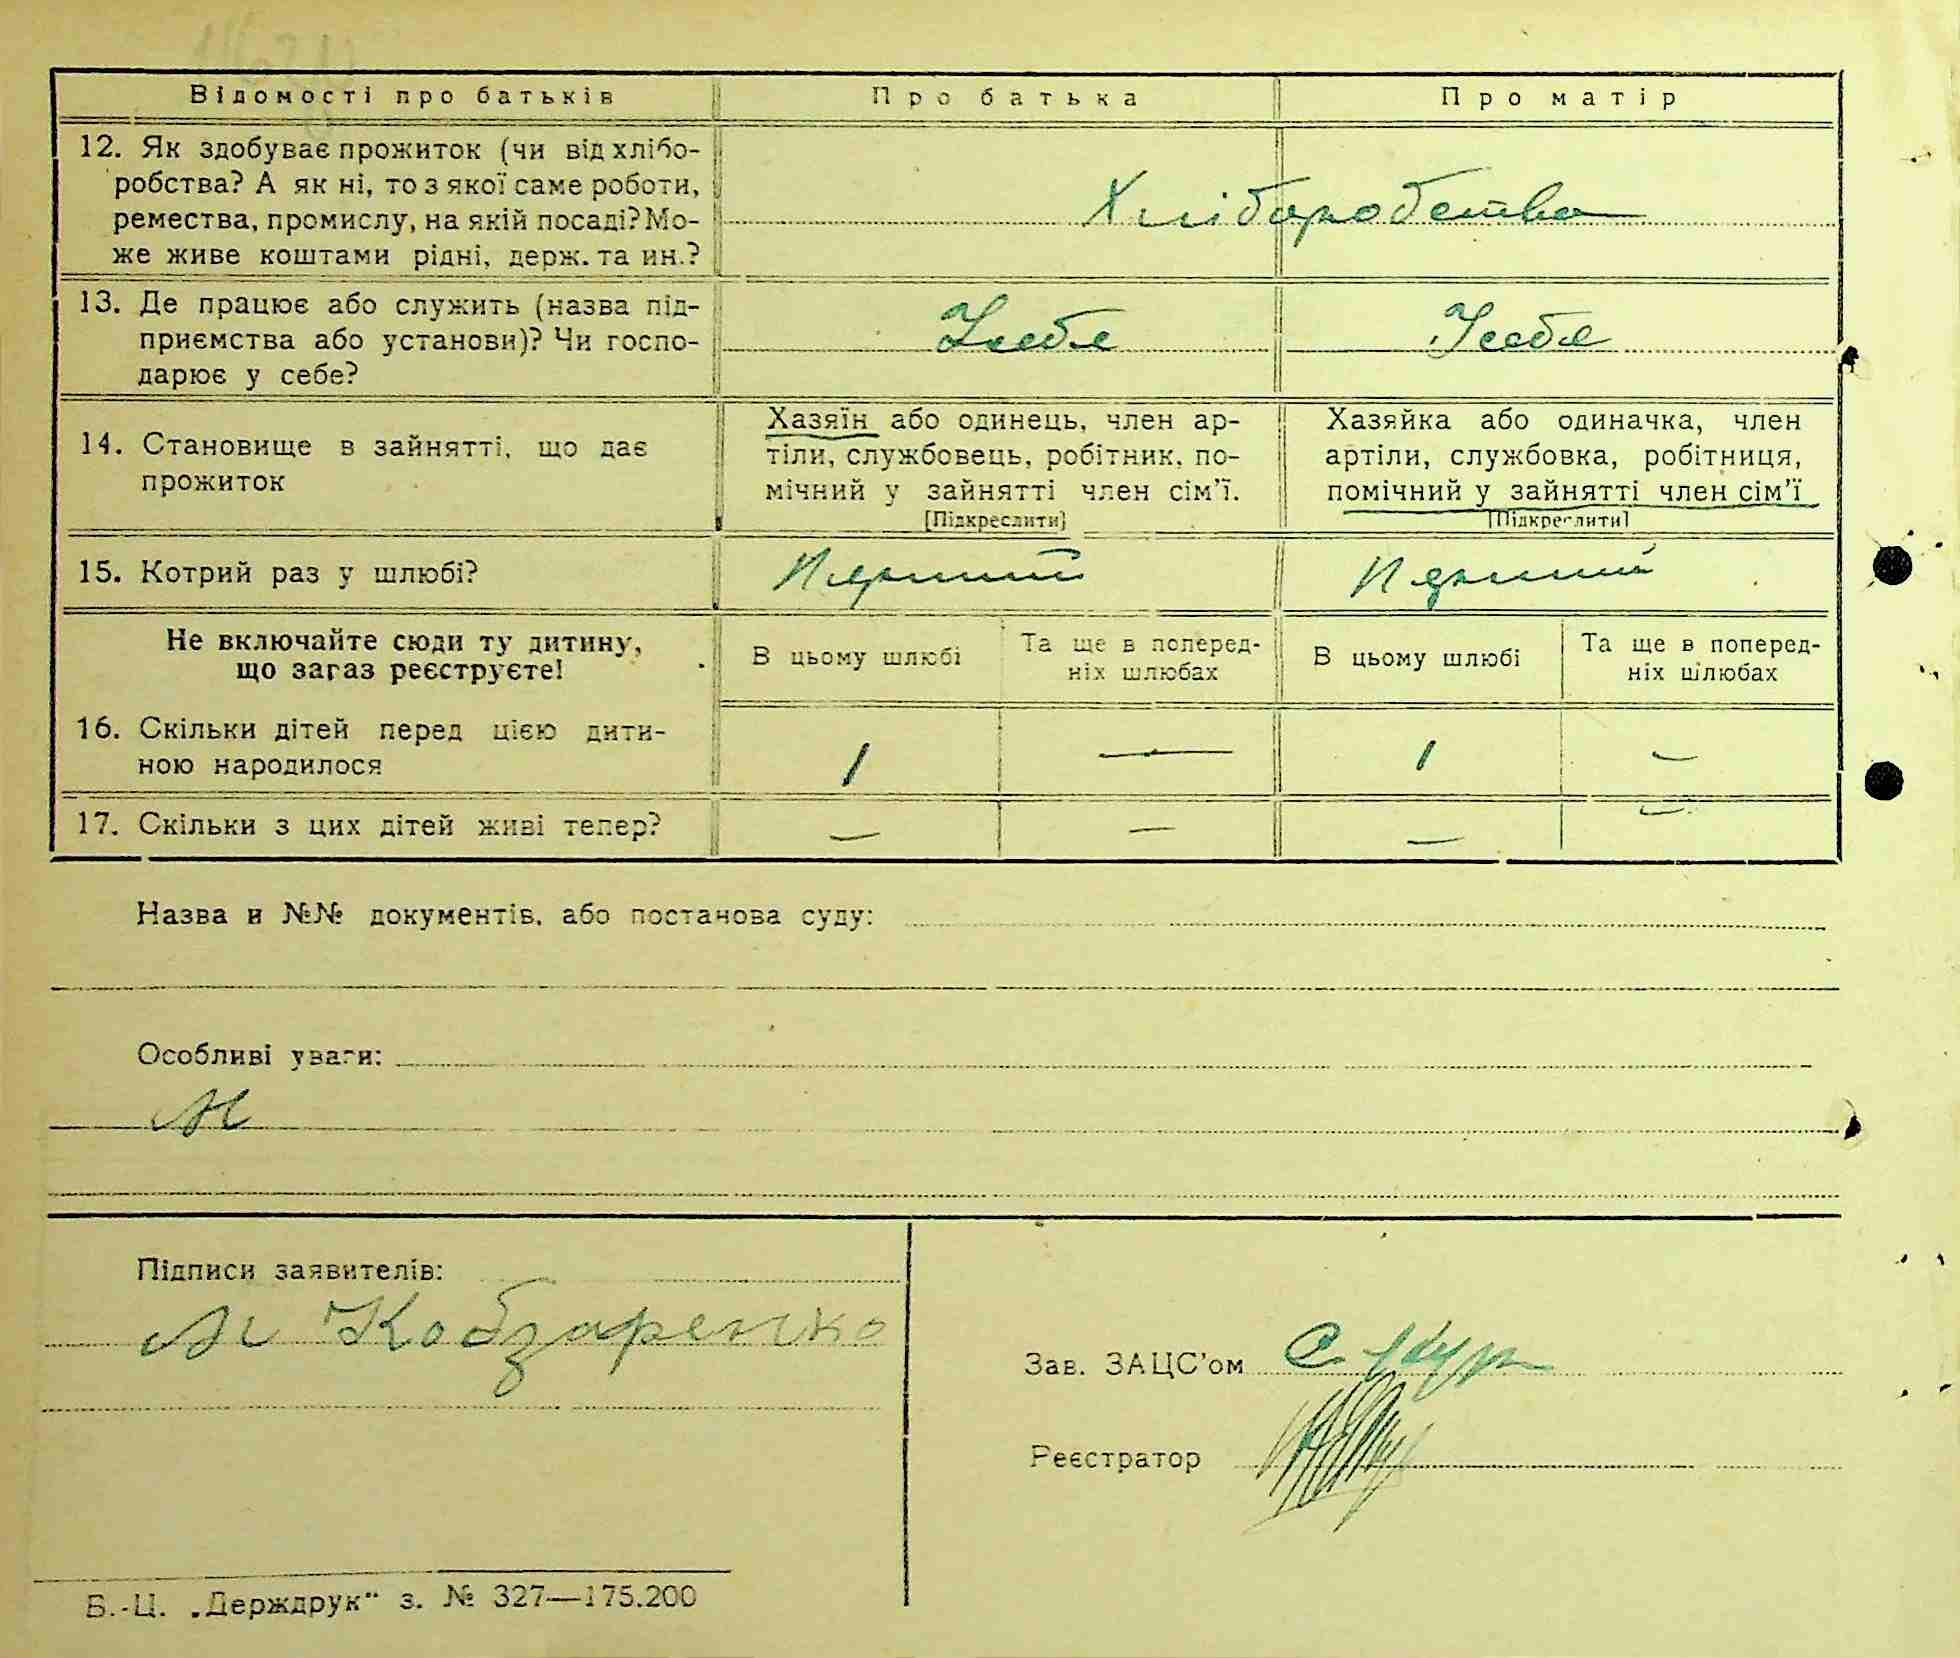 Відомості про батьків Про батька Про матір
12. Як здобуває прожиток (чи від хлібо-
робства? А як ні, то з якої саме роботи,
ремества, промислу, на якій посаді? Мо-
же живе коштами рідні, держ. та ин.?
Хліборобство
13. Де працює або служить (назва під-
приємства або установи)? Чи госпо-
дарює у себе?
Усебе Усебе
14. Становище в зайнятті, що дає
прожиток
Хазяїн або одинець, член ар-
тіли, службовець, робітник, по-
мічний у зайнятті член сім'ї.
[Підкреслити]
Хазяйка або одиначка, член
артіли, службовка, робітниця,
помічний у зайнятті член сім'ї
[Підкреслити]
15. Котрий раз у шлюбі? Перший Перший
Не включайте сюди ту дитину,
що зараз реєструєте!
В цьому шлюбі
Та ще в поперед-
ніх шлюбах
В цьому шлюбі
Та ще в поперед-
ніх шлюбах
16. Скільки дітей перед цією дити-
ною народилося
1 — 1 —
17. Скільки з цих дітей живі тепер? — — — —
Назва и №№ документів, або постанова суду:
Особливі уваги:
М
Підписи заявителів:
М Кобзаренко
Зав. ЗАЦС'ом
Реєстратор
Б.-Ц. „Держдрук" з. № 327—175.200